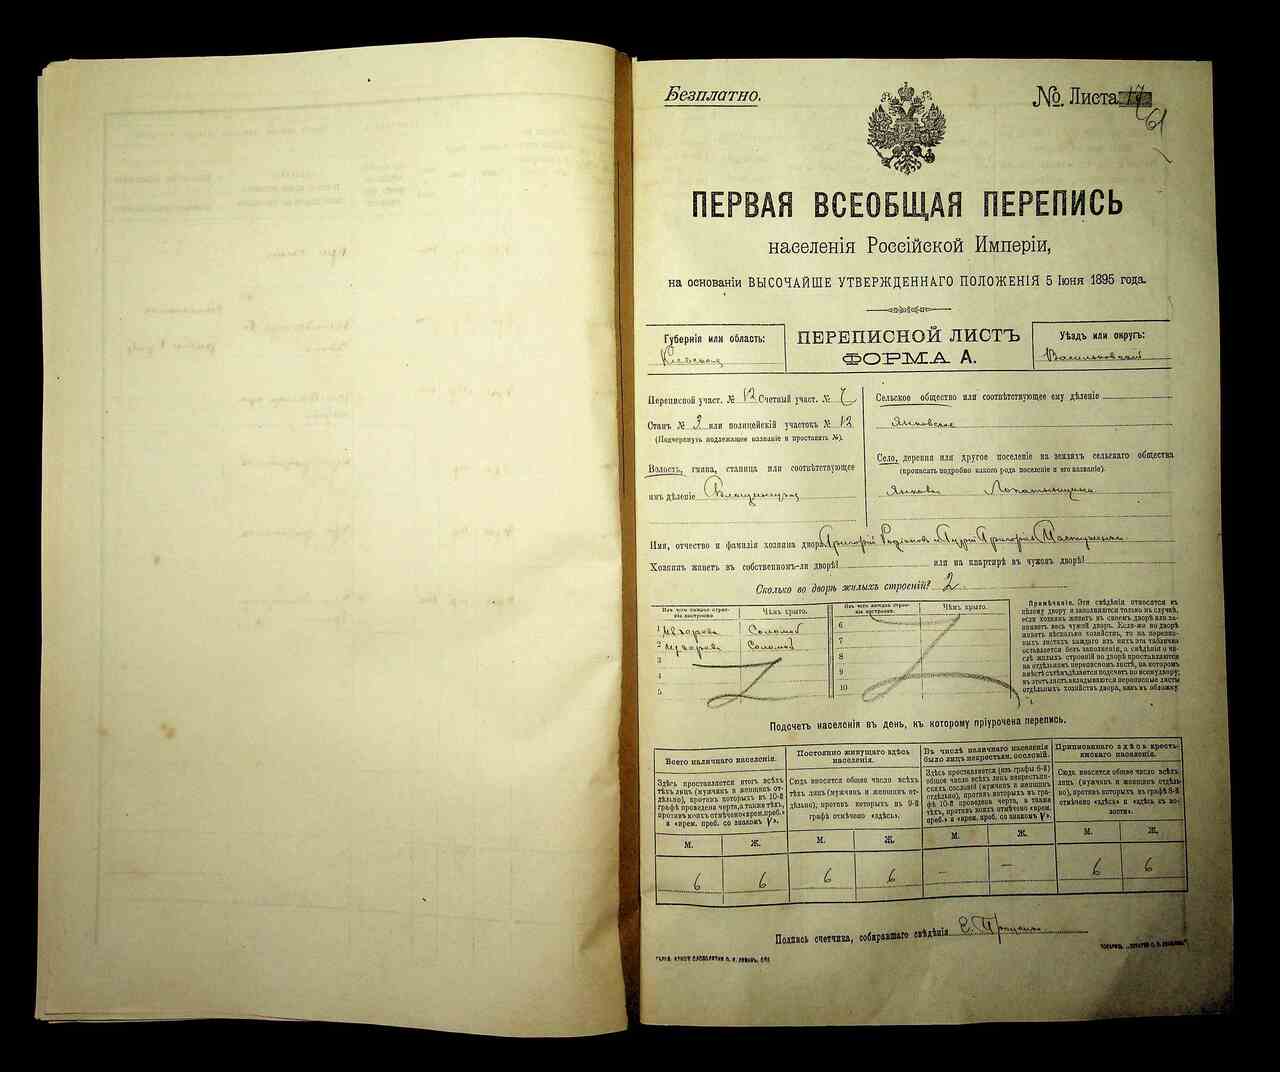 Безплатно.
№ Листа 17
61
ПЕРВАЯ ВСЕОБЩАЯ ПЕРЕПИСЬ
населенія Россійской Имперіи,
на основаніи ВЫСОЧАЙШЕ УТВЕРЖДЕННАГО ПОЛОЖЕНІЯ 5 Іюня 1895 года.
Губернія или область:
Кіевская
ПЕРЕПИСНОЙ ЛИСТЪ
ФОРМА А.
Уѣздъ или округъ:
Васильковскій
Переписной участ. № 12 Счетный участ. № 7
Станъ № 3 или полицейскій участокъ № 12
(Подчеркнуть надлежащее названіе и проставить №).
Волость, гмина, станица или соотвѣтствующее
имъ дѣленіе
Сельское общество или соотвѣтствующее ему дѣленіе
Янковское
Село, деревня или другое поселеніе на земляхъ сельскаго общества
(прописать подробно какого рода поселеніе и его названіе).
Янковка
Имя, отчество и фамилія хозяина двора Григорій
Хозяинъ живетъ въ собственномъ-ли дворѣ? или на квартирѣ въ чужомъ дворѣ?
Сколько во дворѣ жилыхъ строеній? 2
Изъ чего каждое строеніе построено
Чѣмъ крыто.
1 Соломой
2 Соломой
3
4
5
Изъ чего каждое строеніе построено
Чѣмъ крыто.
6
7
8
9
10
Примѣчаніе. Эти свѣдѣнія относятся къ
цѣлому двору и заполняются только въ случаѣ,
если хозяинъ живетъ въ своемъ дворѣ или занимаетъ
весь чужой дворъ. Если-же во дворѣ
живетъ нѣсколько хозяйствъ, то на переписныхъ
листахъ каждаго изъ нихъ эта табличка
оставляется безъ заполненія, а свѣдѣнія о числѣ
жилыхъ строеній во дворѣ проставляются
на отдѣльномъ переписномъ листѣ, на которомъ
вмѣстѣ съ тѣмъ дѣлается подсчетъ по всему двору;
въ этотъ листъ вкладываются переписные листы
отдѣльныхъ хозяйствъ двора, какъ въ обложку.
Подсчетъ населенія въ день, къ которому пріурочена перепись.
Всего наличнаго населенія.
Здѣсь проставляется итогъ всѣхъ
тѣхъ лицъ (мужчинъ и женщинъ отдѣльно),
противъ которыхъ въ 10-й
графѣ проведена черта, а также тѣхъ,
противъ коихъ отмѣчено «врем. преб.»
и «врем. преб. со знакомъ V».
Постоянно живущаго здѣсь
населенія.
Сюда вносится общее число всѣхъ
тѣхъ лицъ (мужчинъ и женщинъ отдѣльно),
противъ которыхъ въ 9-й
графѣ отмѣчено «здѣсь».
Въ числѣ наличнаго населенія
было лицъ некрестьян. сословій.
Здѣсь проставляется (изъ графы 6-й)
общее число всѣхъ лицъ некрестьянскихъ
сословій (мужчинъ и женщинъ
отдѣльно), противъ которыхъ въ графѣ
10-й проведена черта, а также
тѣхъ, противъ коихъ отмѣчено «врем.
преб.» и «врем. преб. со знакомъ V».
Приписаннаго здѣсь крестьянскаго
населенія.
Сюда вносится общее число всѣхъ
лицъ (мужчинъ и женщинъ отдѣльно),
противъ которыхъ въ графѣ 8-й
отмѣчено «здѣсь» и «здѣсь къ волости».
М. Ж. М. Ж. М. Ж. М. Ж.
6 6 6 6 – – 6 6
Подпись счетчика, собиравшаго свѣдѣнія